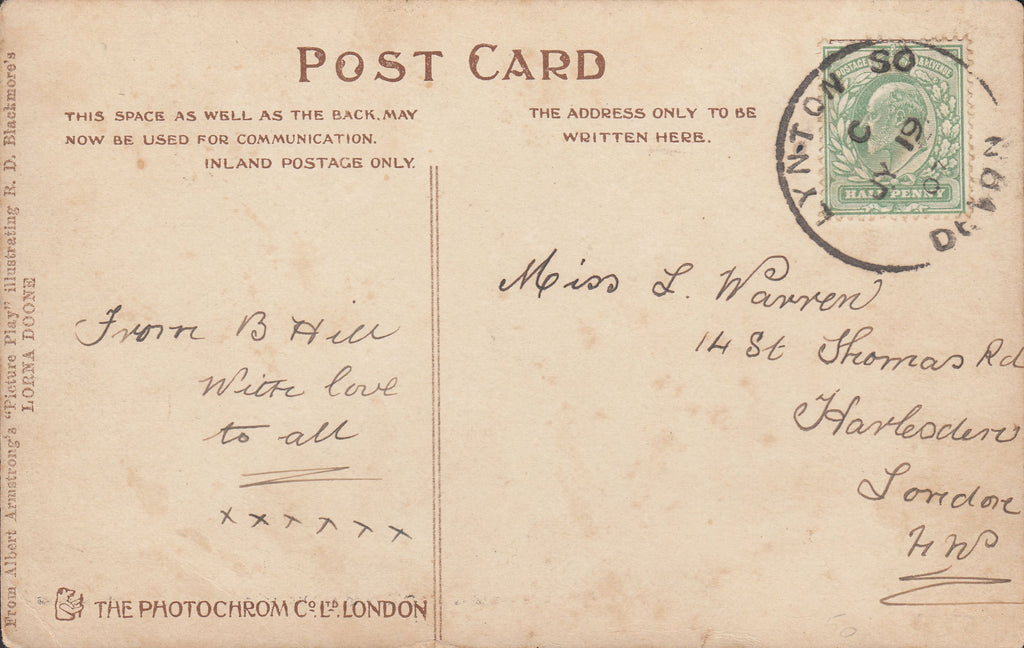 POST CARD
THIS SPACE AS WELL AS THE BACK, MAY
NOW BE USED FOR COMMUNICATION.
INLAND POSTAGE ONLY.
THE ADDRESS ONLY TO BE
WRITTEN HERE.
POSTAGE & REVENUE
HALFPENNY
LYNTON SO
C
JY 19
From Albert Armstrong's "Picture Play" illustrating R. D. Blackmore's
LORNA DOONE
From B Hill
With love
to all
x x x x x x
Miss L. Warren
14 St Thomas Rd
Harlesden
London
N W
THE PHOTOCHROM Co. LTD. LONDON